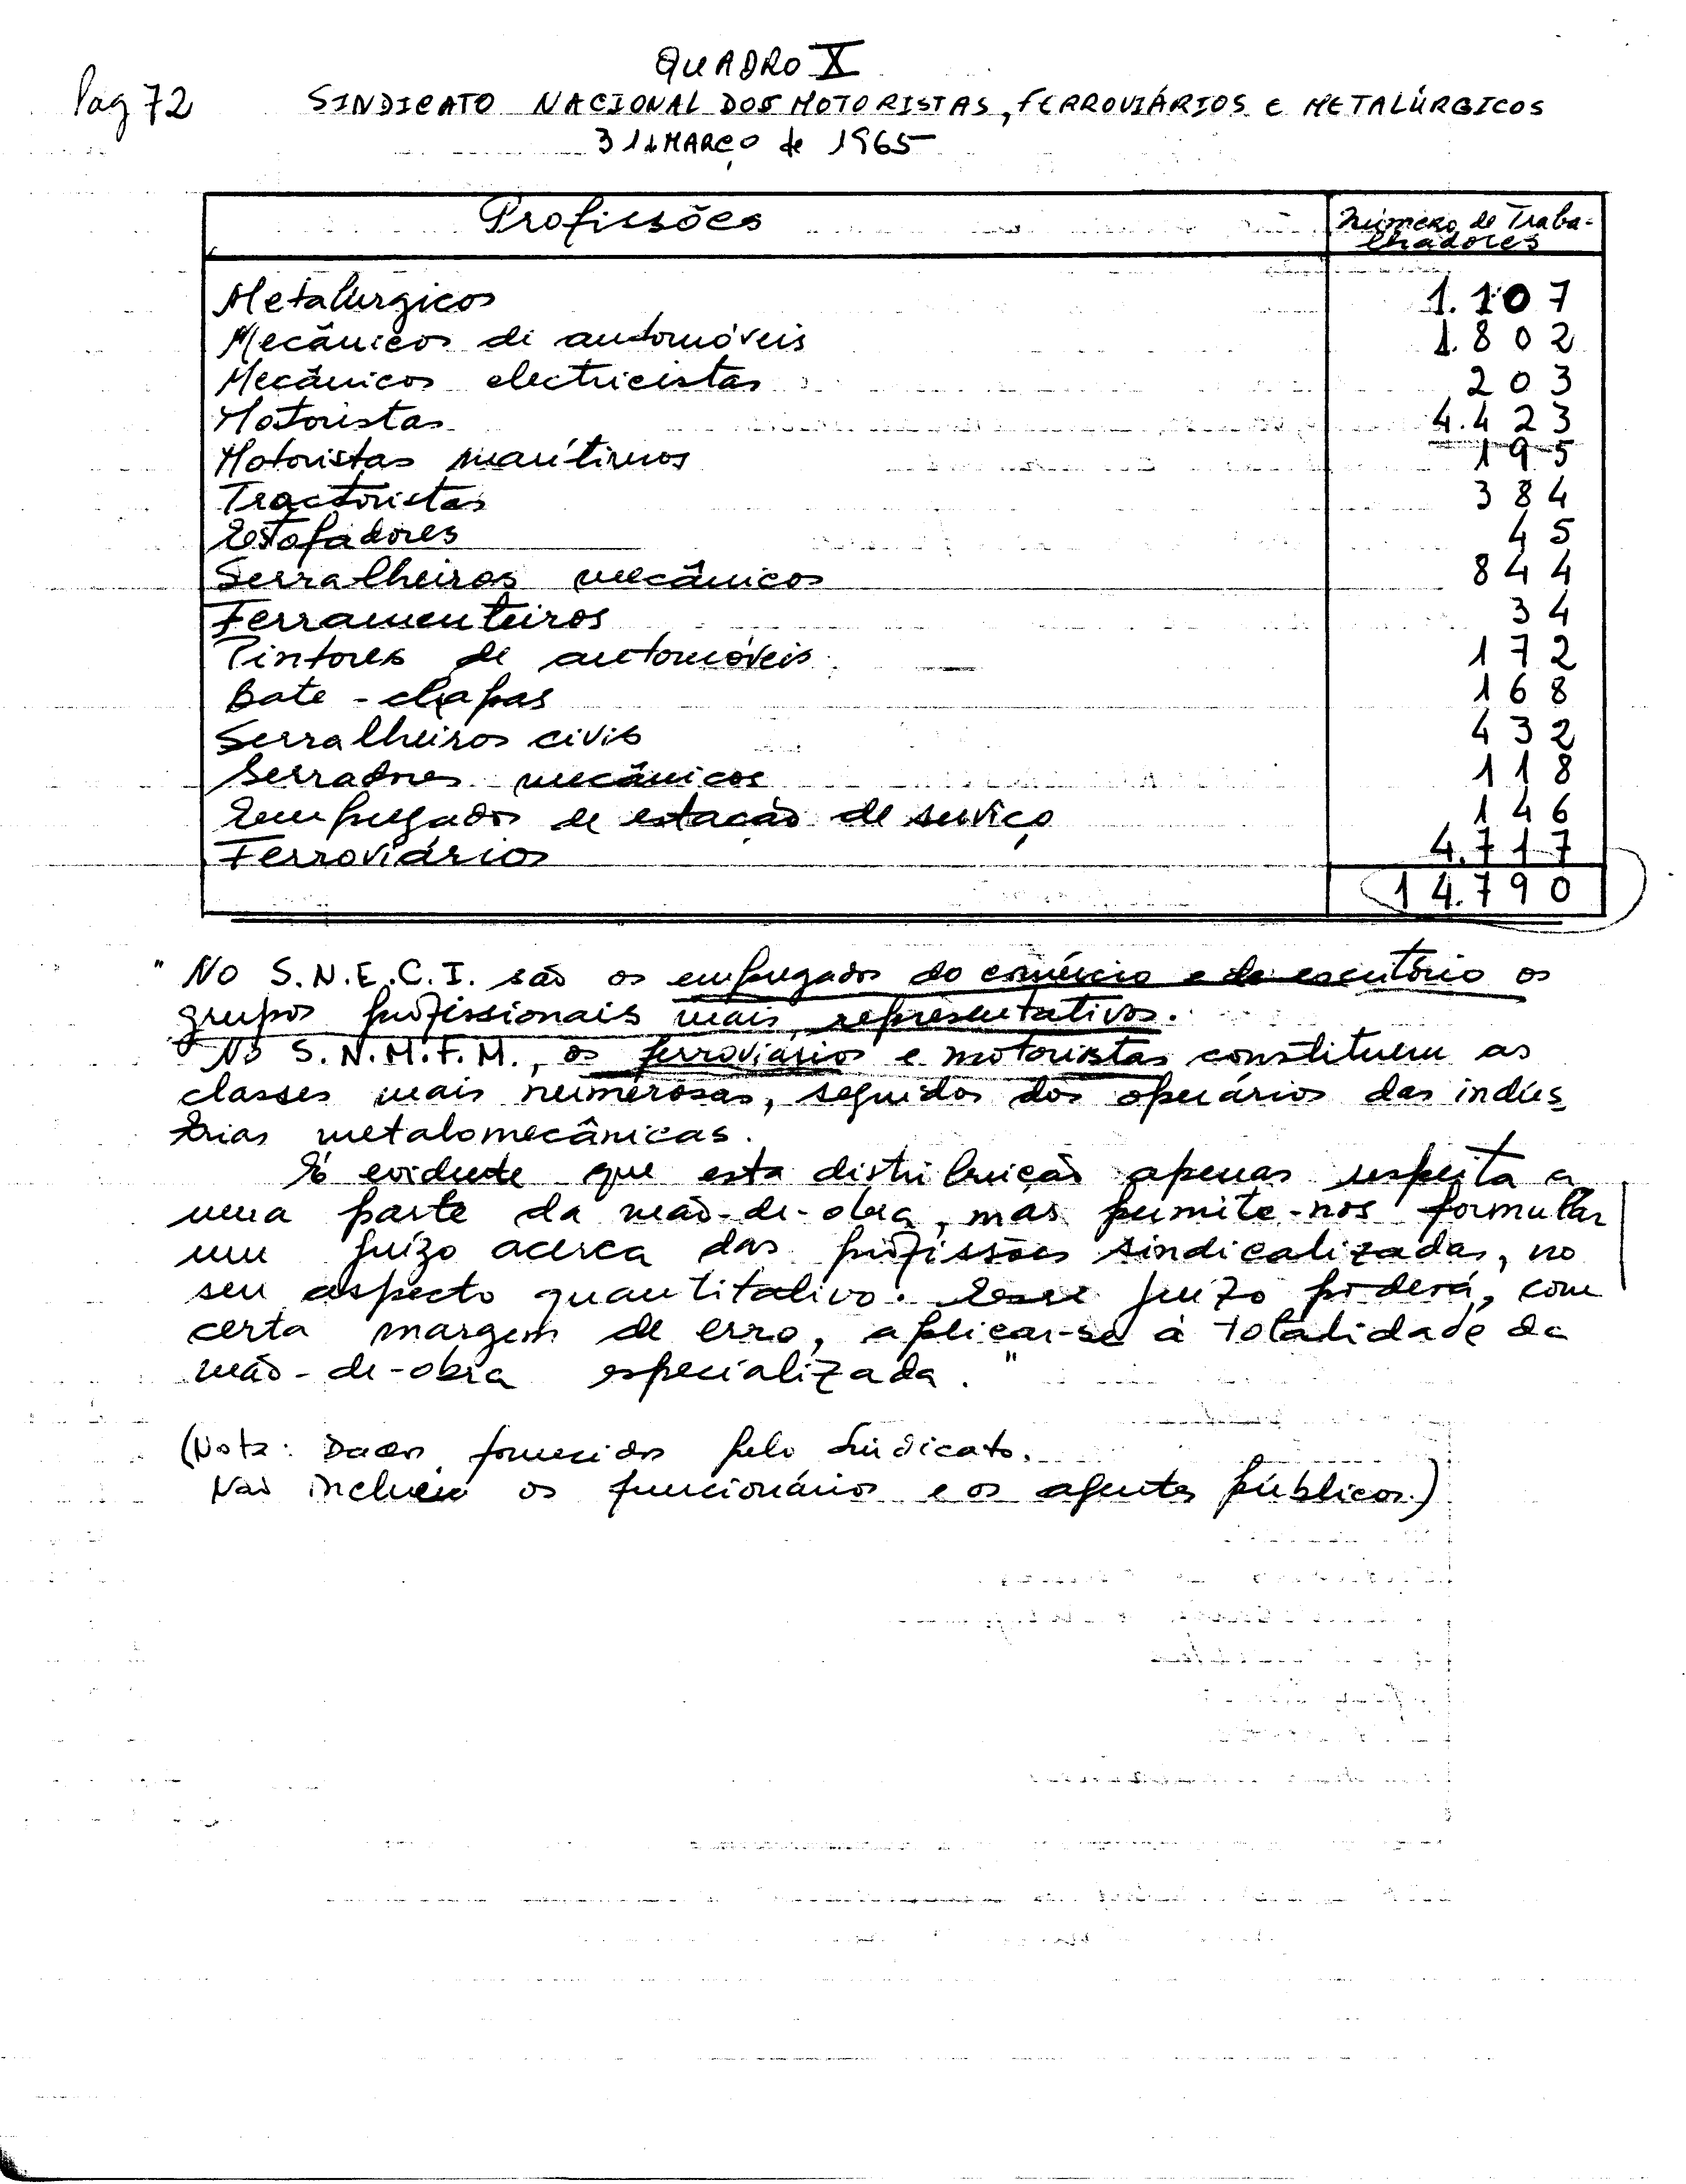 QUADRO X
Pag 72
SINDICATO NACIONAL DOS MOTORISTAS, FERROVIÁRIOS E METALÚRGICOS
31 de MARÇO de 1965
Profissões
Número de Traba-
lhadores
Metalúrgicos 1.107
Mecânicos de automóveis 1.802
Mecânicos electricistas 203
Motoristas 4.423
Motoristas marítimos 195
Tractoristas 384
Estofadores 45
Serralheiros mecânicos 844
Ferramenteiros 34
Pintores de automóveis 172
Bate-chapas 168
Serralheiros civis 432
Serradores mecânicos 118
Empregados de estação de serviço 146
Ferroviários 4.717
14.790
"No S.N.E.C.I. são os empregados do comércio e de escritório os
grupos profissionais mais representativos.
No S.N.M.F.M., os ferroviários e motoristas constituem as
classes mais numerosas, seguidos dos operários das indús
trias metalomecânicas.
É evidente que esta distribuição apenas respeita a
uma parte da mão-de-obra, mas permite-nos formular
um juízo acerca das profissões sindicalizadas, no
seu aspecto quantitativo. Esse juízo poderá, com
certa margem de erro, aplicar-se à totalidade da
mão-de-obra especializada."
(Nota: Dados fornecidos pelo Sindicato.
Não incluem os funcionários e os agentes públicos.)